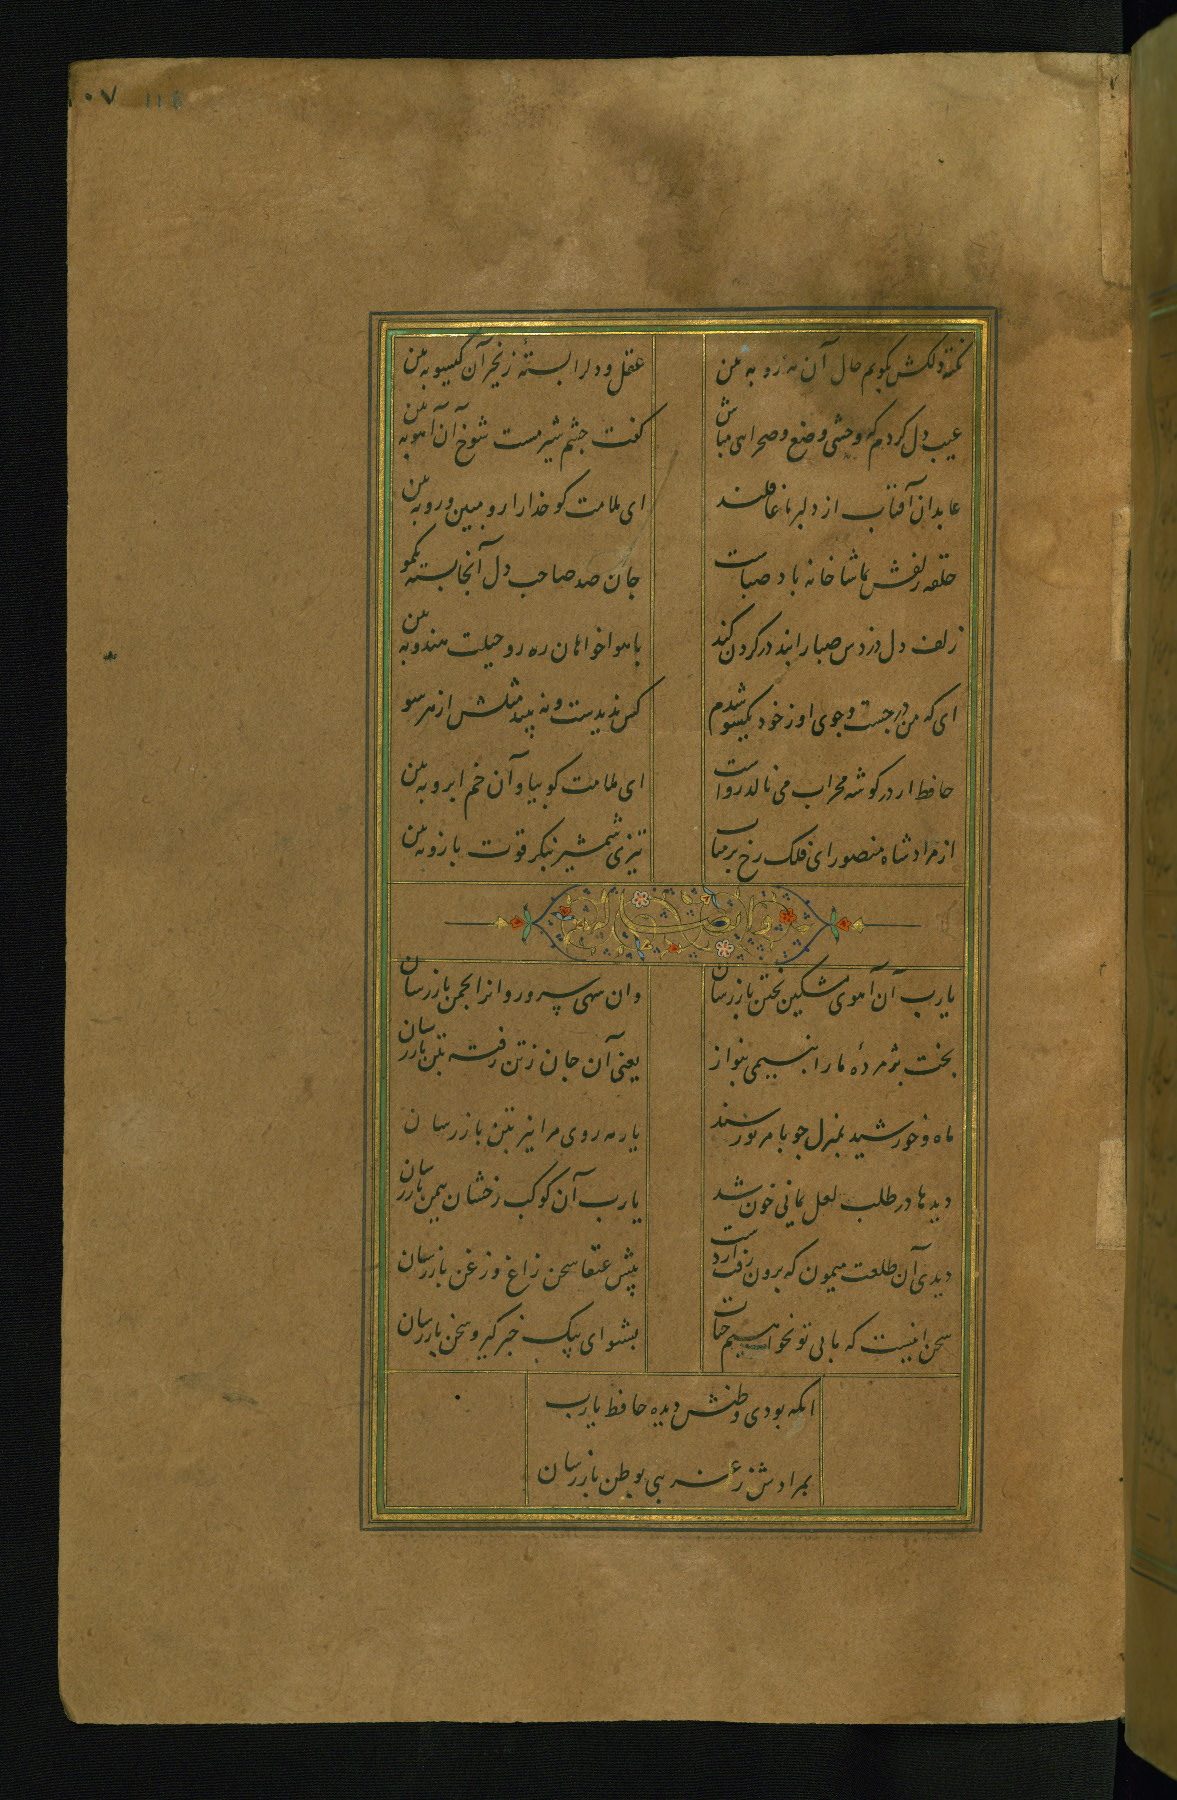 ۱۰۷ ۱۱۶
نکته دلکش بگویم حال آن مه رو به بین
عقل و دل را بستهٔ زنجیر آن گیسو به بین
عیب دل کردم که وحشی وضع و صحرای مباش
گفت چشم شیر مست شوخ آن آهو به بین
عابدان آفتاب از دلبر ما غافلند
ای ملامت کو خدا را رو مبین و رو به بین
حلقه زلفش تماشا خانه باد صباست
جان صد صاحب دل آنجا بسته یکمو
زلف دل دزدس صبا را بند در کردن کند
با هوا خواهان ره رو حیلت هندو به بین
ای که من در جست و جوی او ز خود یکسو شدم
کس ندیدست و نه بیند مثلش از هر سو
حافظ ار در کوشه محراب می نالد رواست
ای ملامت کو بیا و آن خم ابرو به بین
از مراد شاه منصور ای فلک رخ بر متاب
تیزی شمشیر بنکر قوت بازو به بین
یارب آن آهوی مشکین بختن باز رسان
وان سهی سرو روانرا بچمن باز رسان
بخت پژمردهٔ ما را بنسیمی بنواز
یعنی آن جان ز تن رفته بتن باز رسان
ماه و خورشید بمنزل چو بامر تو رسند
یار مه روی مرا نیز بمن باز رسان
دیدها در طلب لعل یمانی خون شد
یارب آن کوکب رخشان بیمن باز رسان
دیدی آن طلعت میمون که برون رفت
پیش عنقا سخن زاغ و زغن باز رسان
سخن اینست که ما بی تو نخواهیم حیات
بشنو ای پیک خبر گیر و سخن باز رسان
انکه بودی وطنش دیده حافظ یارب
بمرادش ز غریبی بوطن باز رسان